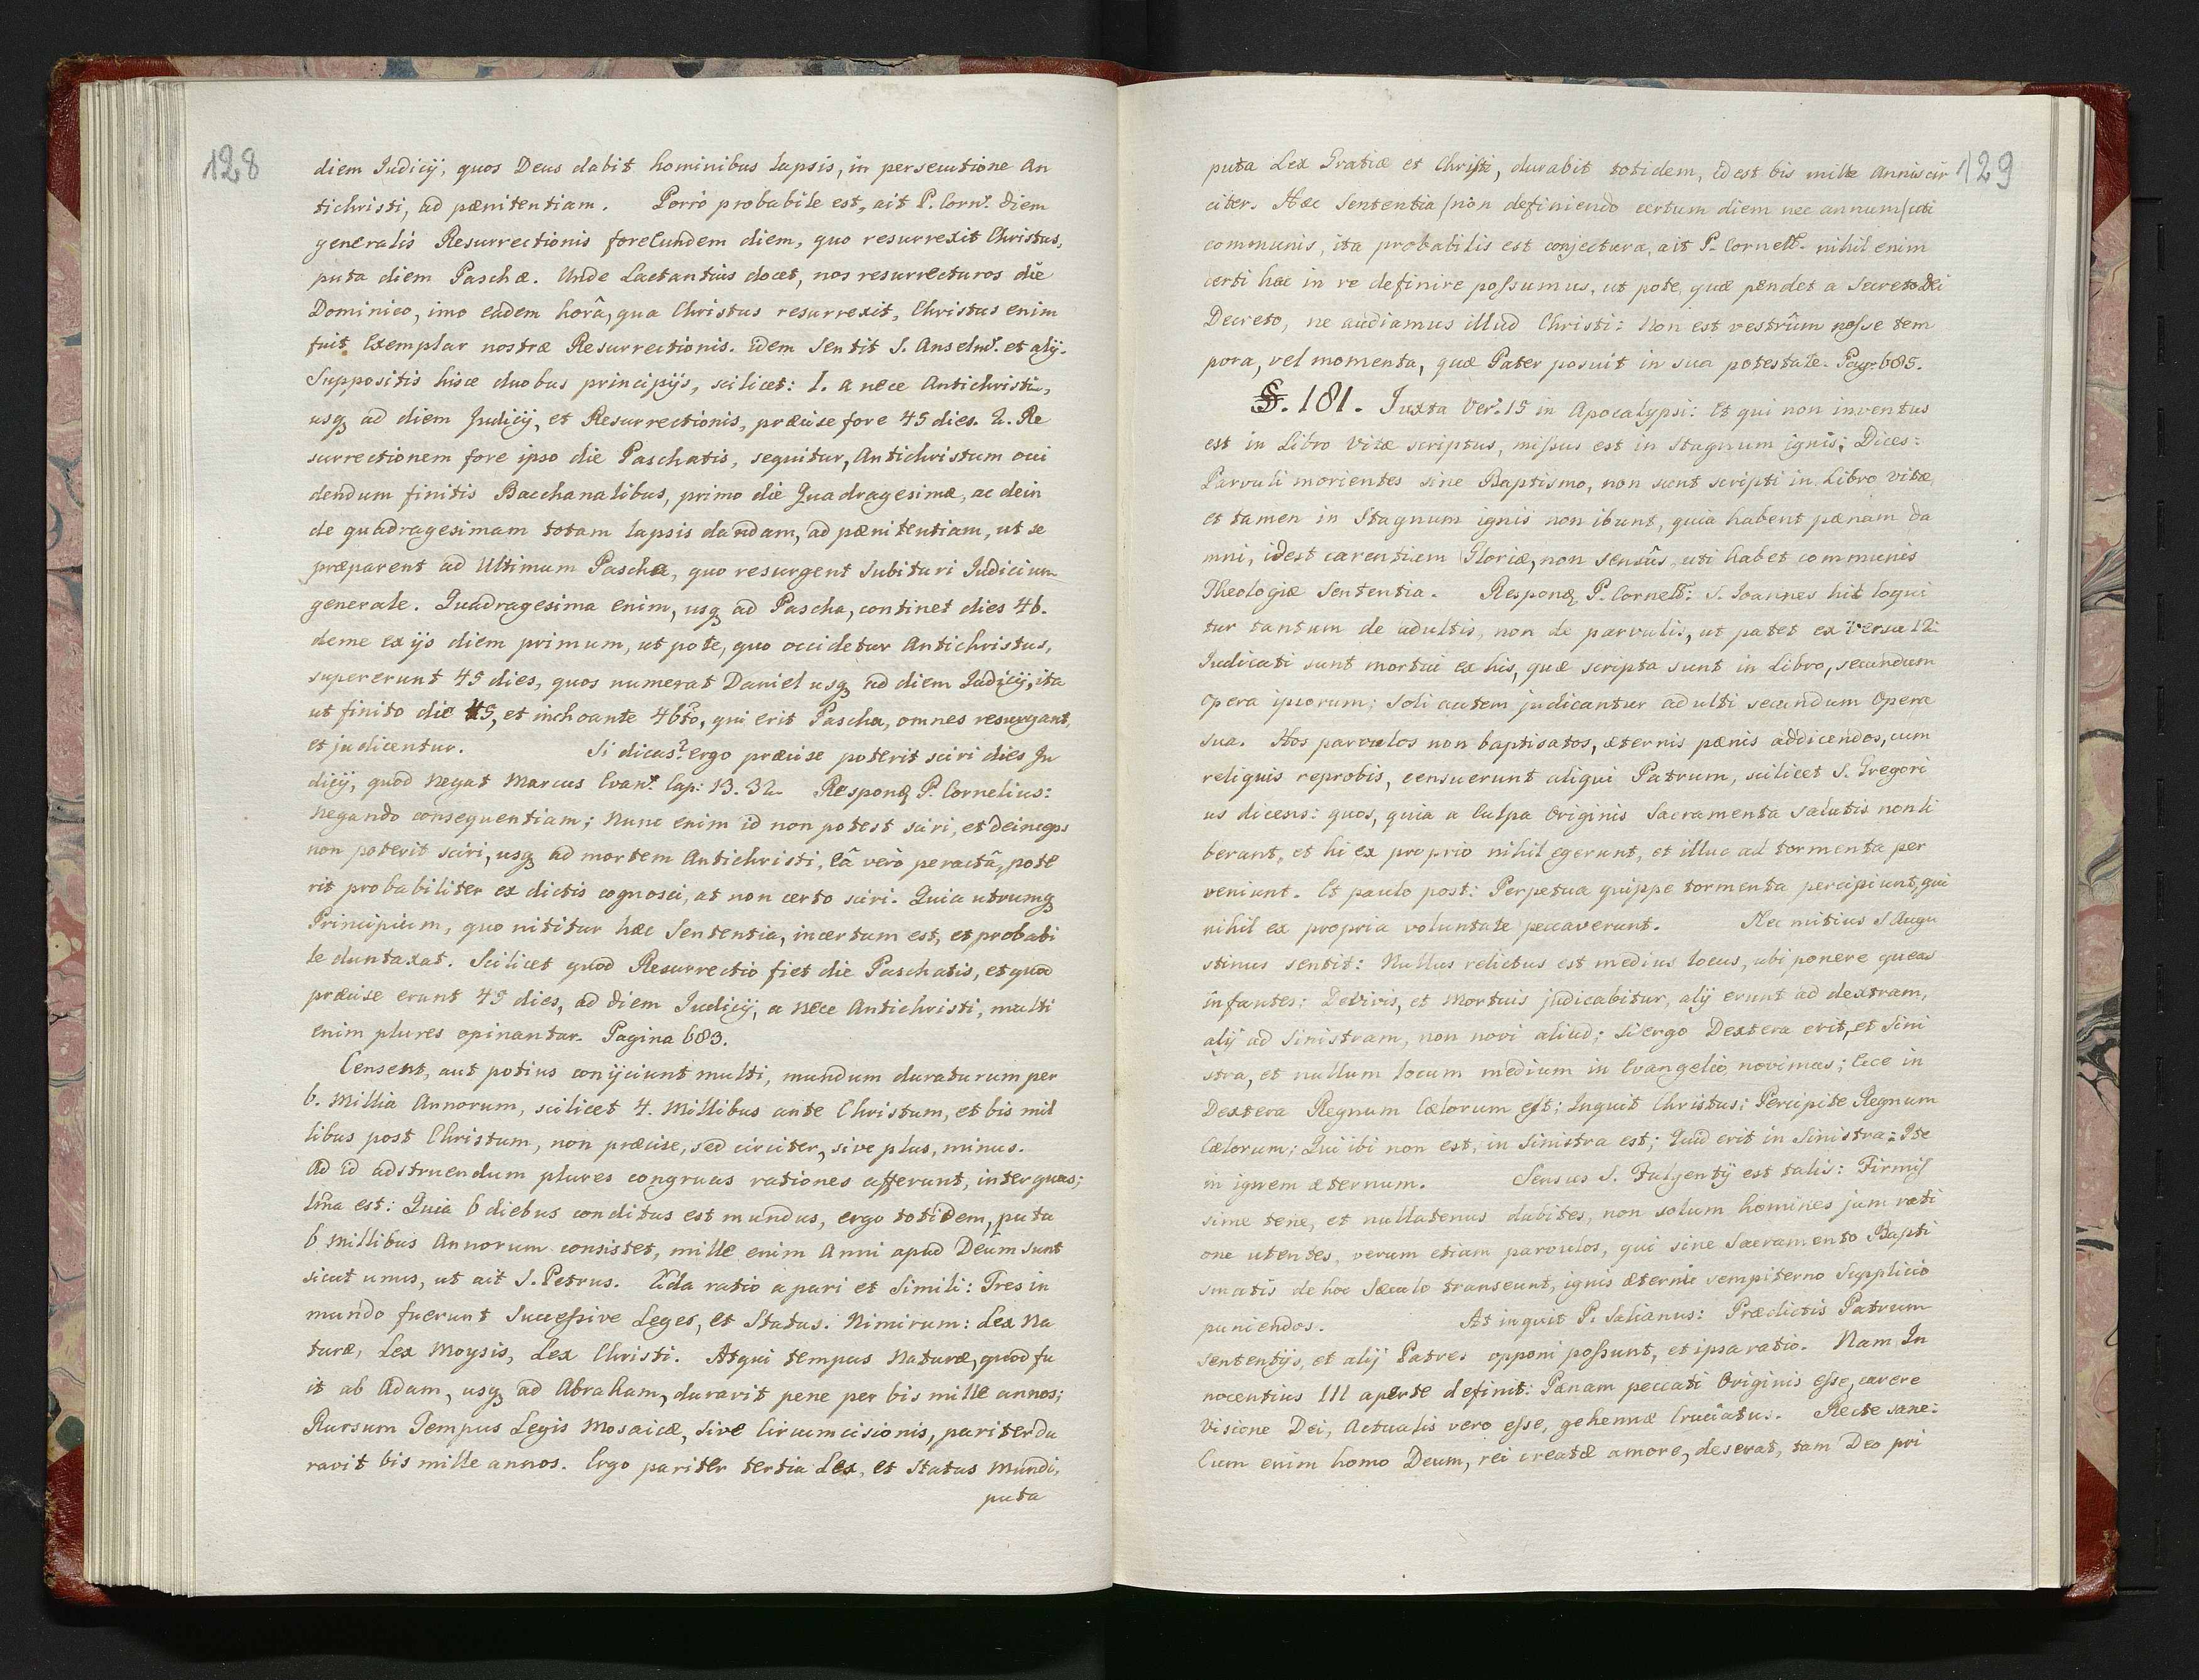 128
diem Judicij, quos Deus dabit hominibus lapsis, in persecutione An
tichristi, ad pænitentiam. Porrò probabile est, ait P. Corn. diem
generalis Resurrectionis fore Eundem diem, quo resurrexit Christus,
puta diem Paschæ. Unde Lactantius docet, nos resurrecturos die
Dominico, imo eadem horâ, qua Christus resurrexit, Christus enim
fuit Exemplar nostræ Resurrectionis. idem sentit S. Anselm. et alij.
Suppositis hisce duobus principijs, scilicet: 1. a nece Antichristi,
usq ad diem Judicij, et Resurrectionis, præcise fore 45 dies. 2. Re
surrectionem fore ipso die Paschatis, sequitur, Antichristum occi
dendum finitis Bacchanalibus, primo die Quadragesimæ, ac dein
de quadragesimam totam lapsis dandam, ad pænitentiam, ut se
præparent ad Ultimum Pascha, quo resurgent Subituri Judicium
generale. Quadragesima enim, usq ad Pascha, continet dies 46.
deme ex ijs diem primum, ut pote, quo occidetur Antichristus,
supererunt 45 dies, quos numerat Daniel usq ad diem Judicij, ita
ut finito die 45, et inchoante 46to, qui erit Pascha, omnes resurgant,
et judicentur. Si dicas? ergo præcise poterit sciri dies Ju
dicij, quod negat Marcus Evan. Cap: 13. 32. Respond P. Cornelius:
Negando consequentiam; Nunc enim id non potest sciri, et deinceps
non poterit sciri, usq ad mortem Antichristi, Eâ verò peractâ, pote
rit probabiliter ex dictis cognosci, at non certo sciri. Quia utrumq
Principium, quo nititur hæc Sententia, incertum est, et probabi
le duntaxat. Scilicet quod Resurrectio fiet die Paschatis, et quod
præcise erunt 45 dies, ad diem Judicij, a Nece Antichristi, multi
enim plures opinantur. Pagina 683.
Censent, aut potius conijciunt multi, mundum duraturum per
6. Millia Annorum, scilicet 4. Millibus ante Christum, et bis mil
libus post Christum, non præcise, sed circiter, sive plus, minus.
Ad id adstruendum plures congruas rationes afferunt, inter quas;
1ma est: Quia 6 diebus conditus est mundus, ergo totidem, puta
6 Millibus Annorum consistet, mille enim Anni apud Deum sunt
sicut unus, ut ait S. Petrus. 2da ratio a pari et Simili: Tres in
mundo fuerunt Successive Leges, et Status. Nimirum: Lex Na
turæ, Lex Moysis, Lex Christi. Atqui tempus Naturæ, quod fu
it ab Adam, usq ad Abraham, duravit pene per bis mille annos;
Rursum Tempus Legis Mosaicæ, sive Circumcisionis, pariter du
ravit bis mille annos. Ergo pariter tertia Lex, et Status Mundi,
puta
129
puta Lex Gratiæ et Christi, durabit totidem, id est bis mille Annis cir
citer. Hæc Sententia (non definiendo certum diem nec annum) uti
communis, ita probabilis est conjectura, ait P. Cornel. nihil enim
certi hac in re definire possumus, ut pote, quæ pendet a Secreto Dei
Decreto, ne audiamus illud Christi: Non est vestrûm nosse tem
pora, vel momenta, quæ Pater posuit in sua potestate. Pag. 685.
§. 181. Juxta Ver. 15 in Apocalypsi: Et qui non inventus
est in Libro Vitæ scriptus, missus est in Stagnum ignis; Dices:
Parvuli morientes sine Baptismo, non sunt scripti in Libro vitæ,
et tamen in Stagnum ignis non ibunt, quia habent pænam da
mni, id est carentiam Gloriæ, non sensûs, uti habet communis
Theologiæ Sententia. Respond P. Cornel: S. Joannes hic loqui
tur tantum de adultis, non de parvulis, ut patet ex versu 12.
Judicati sunt mortui ex his, quæ scripta sunt in Libro, secundum
Opera ipsorum; Soli autem judicantur adulti secundum Opera
sua. Hos parvulos non baptisatos, æternis pænis addicendos, cum
reliquis reprobis, censuerunt aliqui Patrum, scilicet S. Gregori
us dicens: quos, quia a Culpa Originis Sacramenta salutis non li
berant, et hi ex proprio nihil egerunt, et illuc ad tormenta per
veniunt. Et paulo post: Perpetua quippe tormenta percipiunt, qui
nihil ex propria voluntate peccaverunt. Nec mitius S Augu
stinus sentit: Nullus relictus est medius locus, ubi ponere queas
infantes: De vivis, et Mortuis judicabitur, alij erunt ad dextram,
alij ad Sinistram, non novi aliud; Si ergo Dextera erit, et Sini
stra, et nullum locum medium in Evangelio novimus; Ecce in
Dextera Regnum Cælorum est; Inquit Christus: Percipite Regnum
Cælorum; Qui ibi non est, in Sinistra est; Quid erit in Sinistra: Ite
in ignem æternum. Sensus S. Fulgentij est talis: Firmis
sime tene, et nullatenus dubites, non solum homines jam rati
one utentes, verum etiam parvulos, qui sine Sacramento Bapti
smatis de hoc Sæculo transeunt, ignis æterni sempiterno Supplicio
puniendos. At inquit P. Salianus: Prædictis Patrum
sententijs, et alij Patres opponi possunt, et ipsa ratio. Nam In
nocentius III aperte definit: Pænam peccati Originis esse, carere
Visione Dei, Actualis vero esse, gehennæ Cruciatus. Recte sane:
Cum enim homo Deum, rei creatæ amore, deserat, tam Deo pri